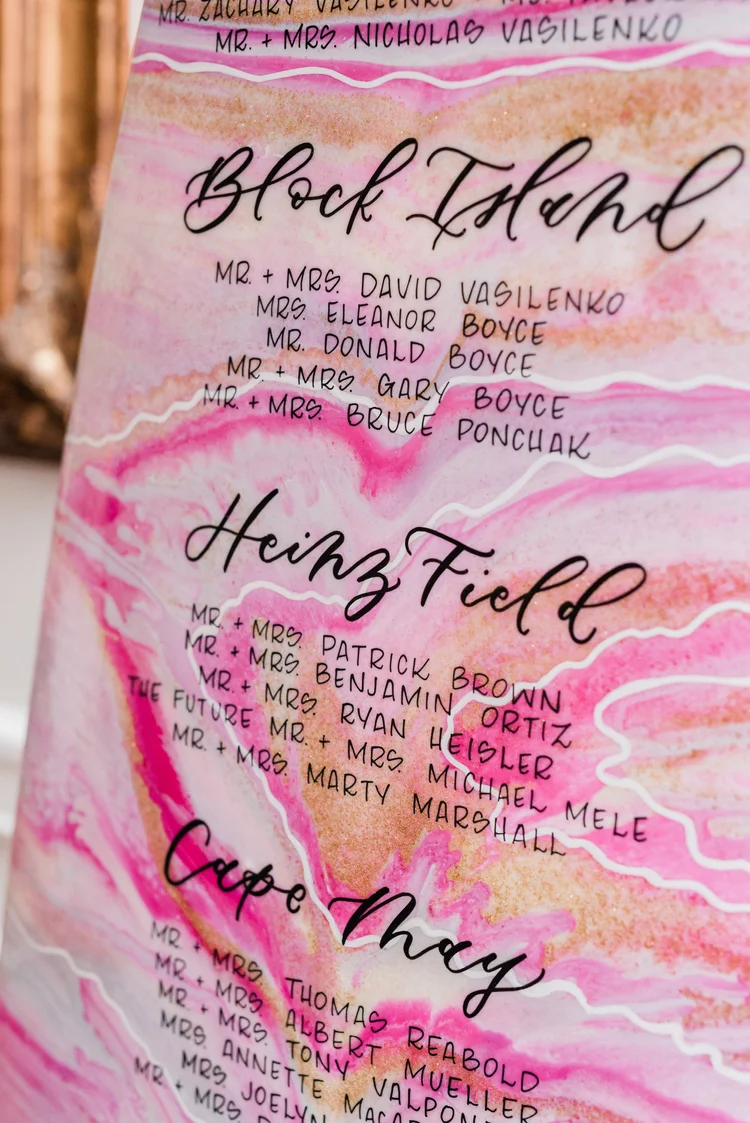 MR. ZACHARY VASILENKO + MS.
MR. + MRS. NICHOLAS VASILENKO
Block Island
MR. + MRS. DAVID VASILENKO
MRS. ELEANOR BOYCE
MR. DONALD BOYCE
MR. + MRS. GARY BOYCE
MR. + MRS. BRUCE PONCHAK
Heinz Field
MR. + MRS. PATRICK BROWN
MR. + MRS. BENJAMIN ORTIZ
MR. + MRS. RYAN HEISLER
THE FUTURE MR. + MRS. MICHAEL MELE
MR. + MRS. MARTY MARSHALL
Cape May
MR + MRS THOMAS REABOLD
MR. + MRS. ALBERT MUELLER
MR. + MRS. TONY
MRS. ANNETTE
MRS. JOELYN
MR + MRS.